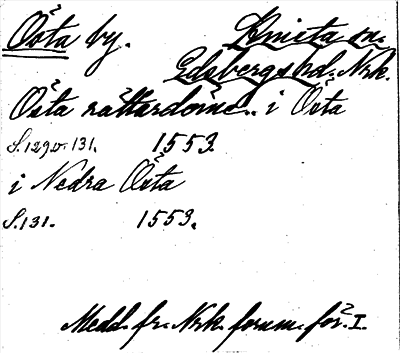 Östa by. Knista sn.
Edsbergs hd. Nrk.
Östa rättardöme.. i Östa
S. 129 o. 131. 1553.
i Nedra Östa
S. 131. 1553.
Medd. fr. Nrk. fornm.för. I.